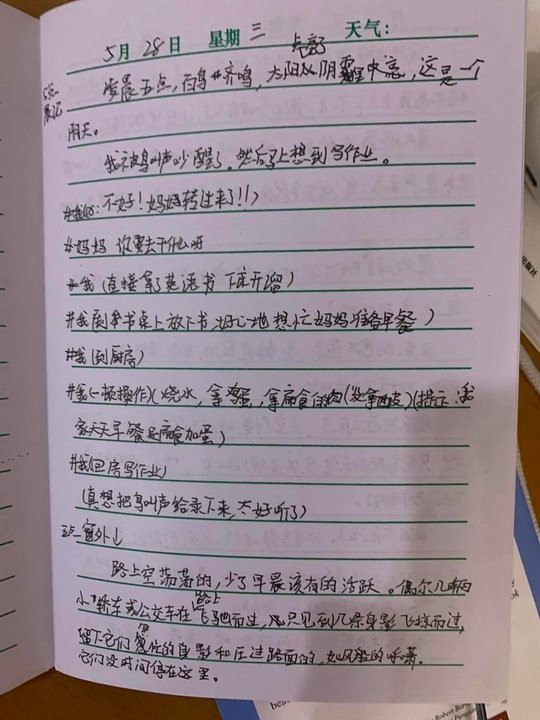 5月28日 星期三 天气:
5点
凌晨五点,百鸟齐鸣,太阳从阴霾中亮,这是一个
阴天。
我被鸟叫声吵醒了。然后马上想到写作业。
不好!妈妈转过来了!!)
#妈妈 你要去干什么呀
#我(直接拿了英语书 下床开溜)
#我(到书桌上放下书 好心地 想忙妈妈准备早餐)
#我(到厨房)
#我(一顿操作)(烧水,拿鸡蛋,拿扁食的肉(没拿面皮)(提示:我
家天天早餐是扁食加蛋)
#我(回房写作业)
(真想把鸟叫声给录下来,太好听了)
五点 窗外↓
路上空荡荡的,少了早晨该有的活跃。偶尔几辆
小轿车或公交车在路上飞驰而过,只见到几条身影飞掠而过,
留下它们匆忙的身影和压过路面的,如风般的呼啸。
它们没时间停在这里。
Robert